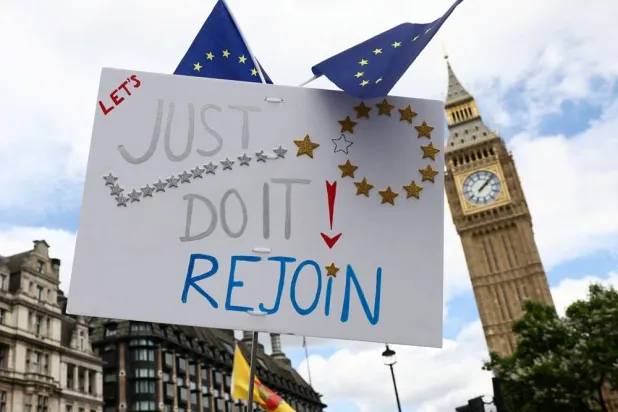 LET'S
JUST
DO IT!
REJOIN